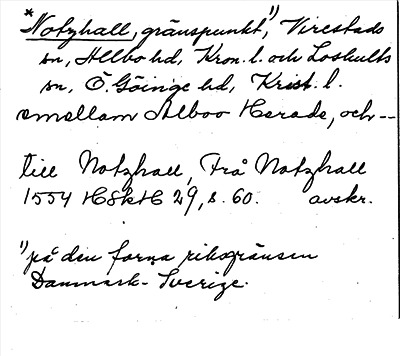 *Notzhall, gränspunkt,¹⁾ Virestads
sn, Allbo hd, Kron. l. och Loshults
sn, Ö. Göinge hd, Krist. l.
emellam Alboo Herade, och --
till Notzhall, Frå Notzhall
1554 HSkH 29, s. 60. avskr.
¹⁾på den forna riksgränsen
Danmark-Sverige.